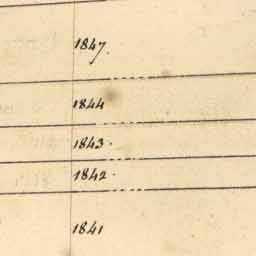 1847.
1844
1843.
1842.
1841